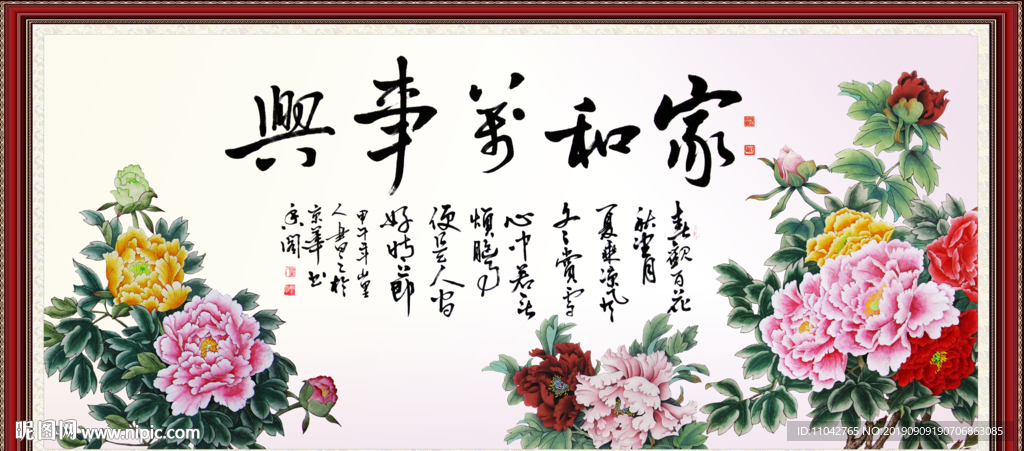 家和萬事興
春觀百花
秋望月
夏乘凉风
冬賞雪
心中若无
煩腦事
便是人间
好時節
甲午年
京華
昵图网 www.nipic.com
ID:11042765 NO:20190909190706863085